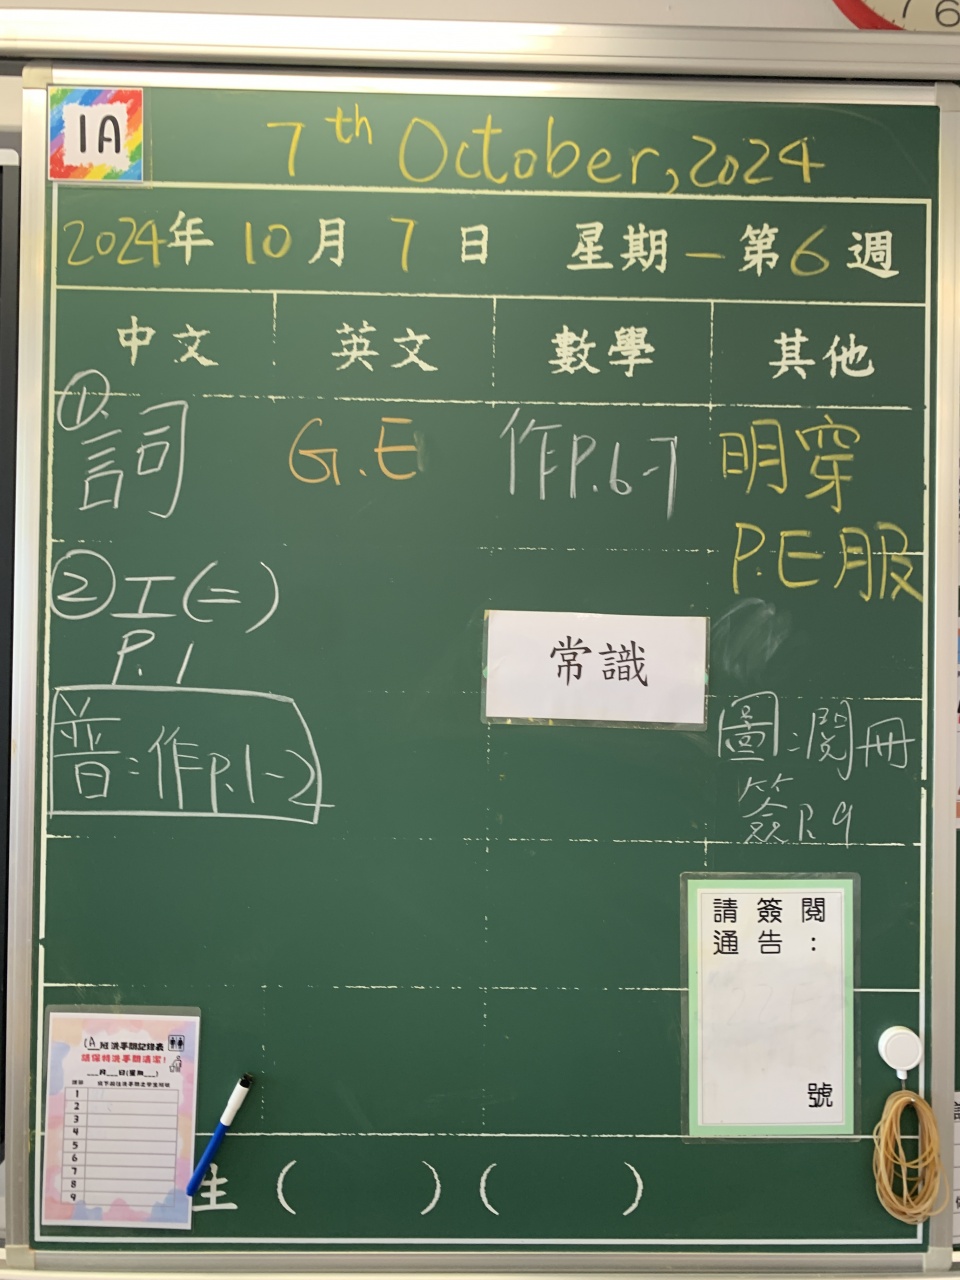 6
1A
7th October, 2024
2024年 10月 7日 星期一 第6週
中文 英文 數學 其他
①詞 G.E 作P.6-7 明穿
P.E服
②工(二)
P.1
常識
普:作P.1-2
圖:閱冊
簽P.9
請簽閱
通告:
號
(A)班洗手間記錄表
請保持洗手間清潔!
__月__日(星期__)
1
2
3
4
5
6
7
8
9
生 ( ) ( )